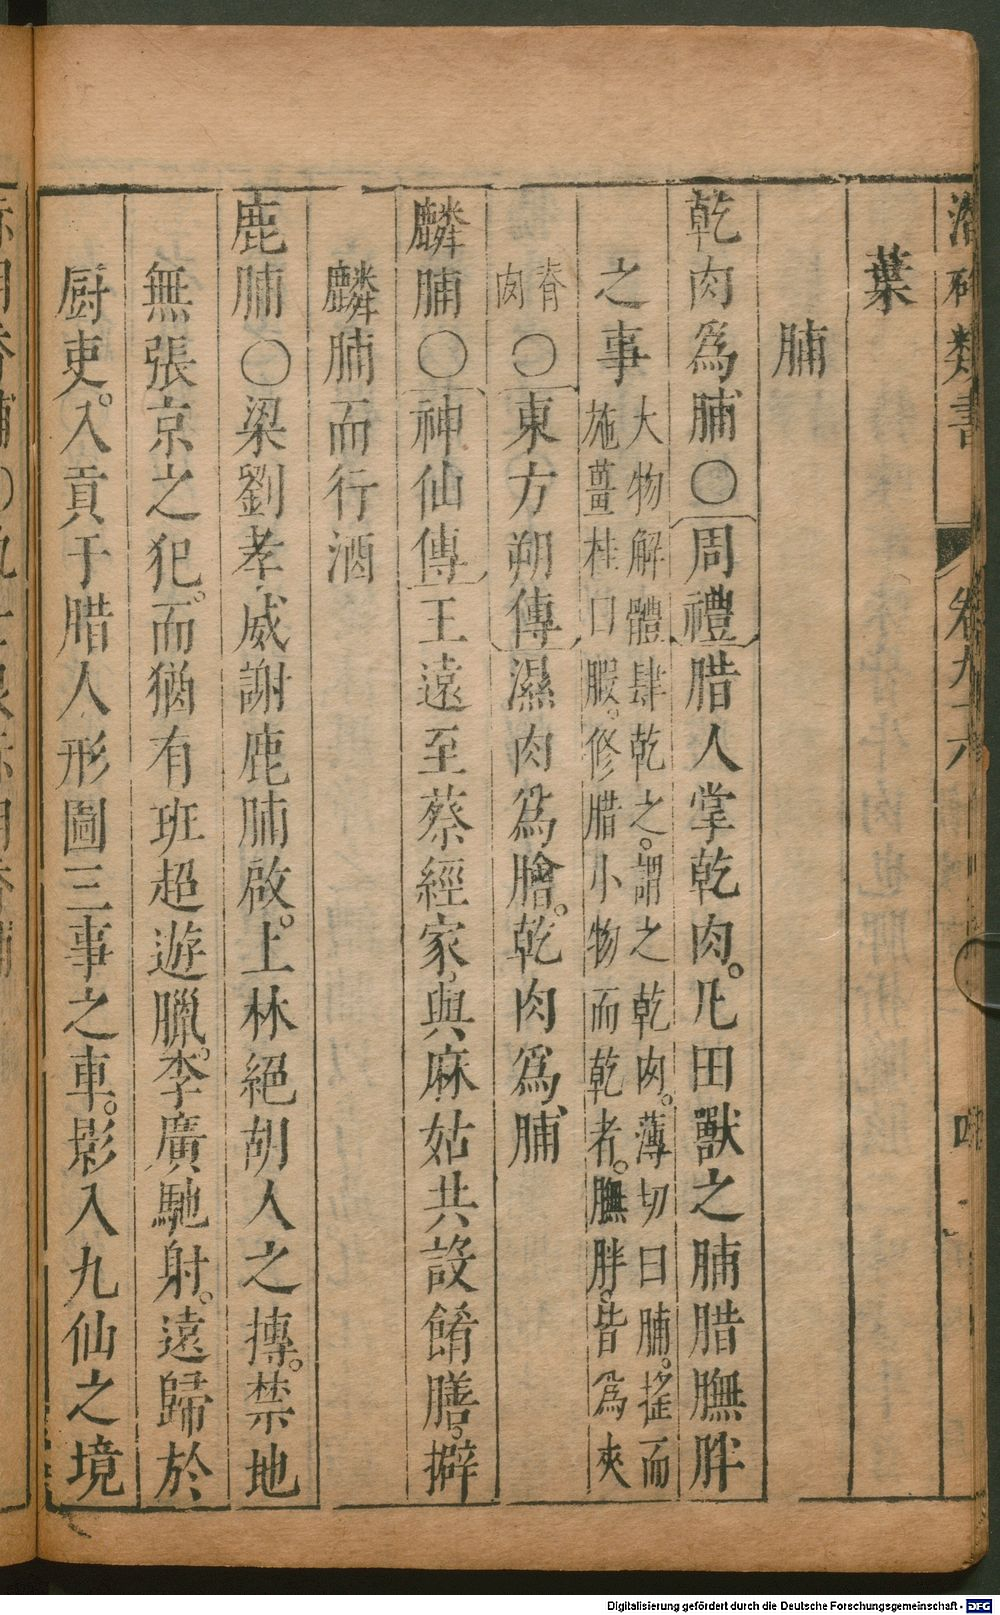 潛確類書 卷九十六
葉
脯
乾肉爲脯○周禮腊人掌乾肉。凡田獸之脯腊膴胖
之事大物解體肆乾之。謂之乾肉。薄切曰脯。搖而
施薑桂曰腶。修腊小物而乾者。膴胖。皆爲夾
脊肉○東方朔傳濕肉爲膾。乾肉爲脯
麟脯○神仙傳王遠至蔡經家，與麻姑共設餚膳，擗
麟脯而行酒
鹿脯○梁劉孝威謝鹿脯啟。上林絕胡人之摶。禁地
無張京之犯。而猶有班超遊臘。李廣馳射。遠歸於
厨吏。入貢于腊人形圖三事之車。影入九仙之境
Digitalisierung gefördert durch die Deutsche Forschungsgemeinschaft - DFG